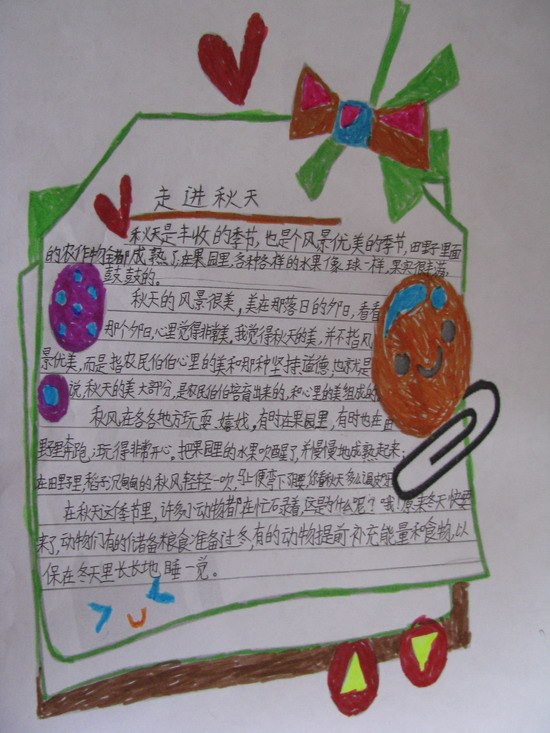 走进秋天
秋天是丰收的季节,也是个风景优美的季节,田野里面
的农作物全都成熟了,在果园里,各种各样的水果像球一样,果实很美满,
鼓鼓的。
秋天的风景很美,美在那落日的夕阳,看着
那个夕阳,心里觉得非常美。我觉得秋天的美,并不指风
景优美,而是指农民伯伯心里的美和那种坚持道德,也就是
说,秋天的美大部分,是农民伯伯培育出来的,和心里的美组成的
秋风在各各地方玩耍、嬉戏,有时在果园里,有时也在田
野里奔跑,玩得非常开心。把果园里的水果吹醒了,并慢慢地成熟起来;
在田野里,稻子沉甸甸的,秋风轻轻一吹,马上便弯下了腰,你看秋天多么
在秋天这个季节里,许多小动物都在忙碌着,这是为什么呢?哦!原来冬天快要
来了,动物们有的储备粮食准备过冬,有的动物提前补充能量和食物,以
保在冬天里长长地睡一觉。